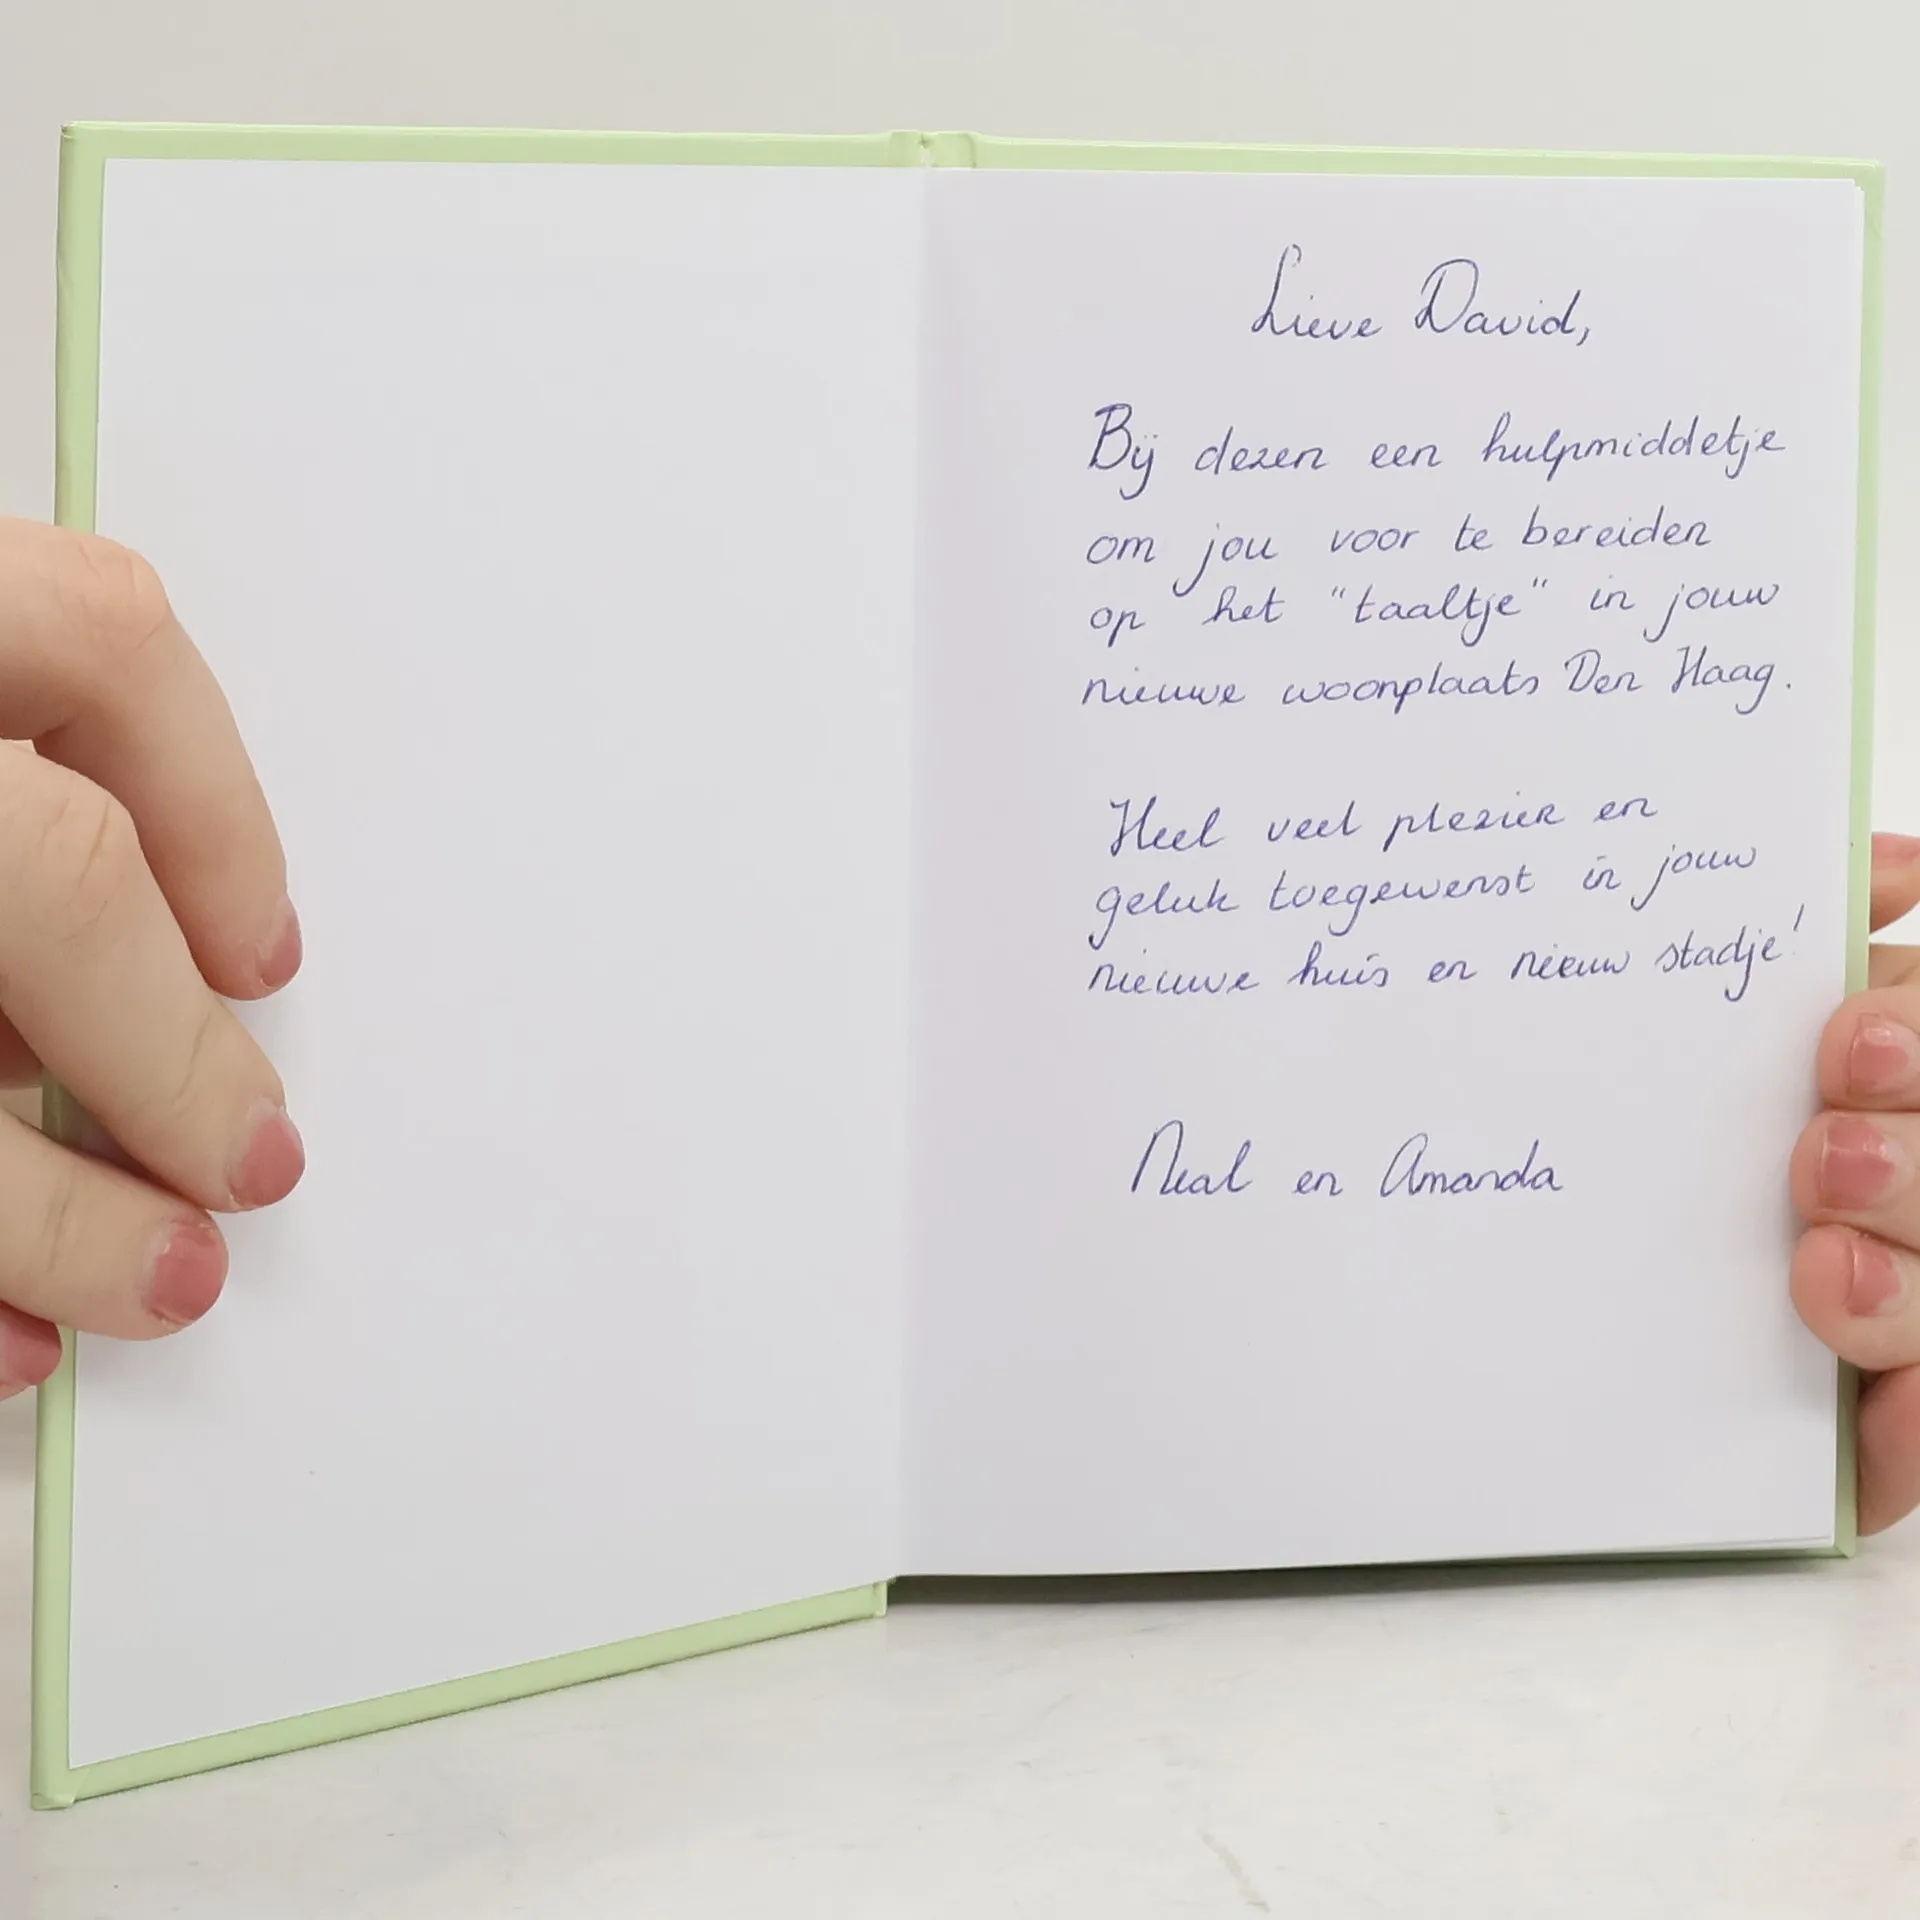 Lieve David,
Bij dezen een hulpmiddeltje
om jou voor te bereiden
op het "taaltje" in jouw
nieuwe woonplaats Den Haag.
Heel veel plezier en
geluk toegewenst in jouw
nieuwe huis en nieuw stadje!
Neal en Amanda